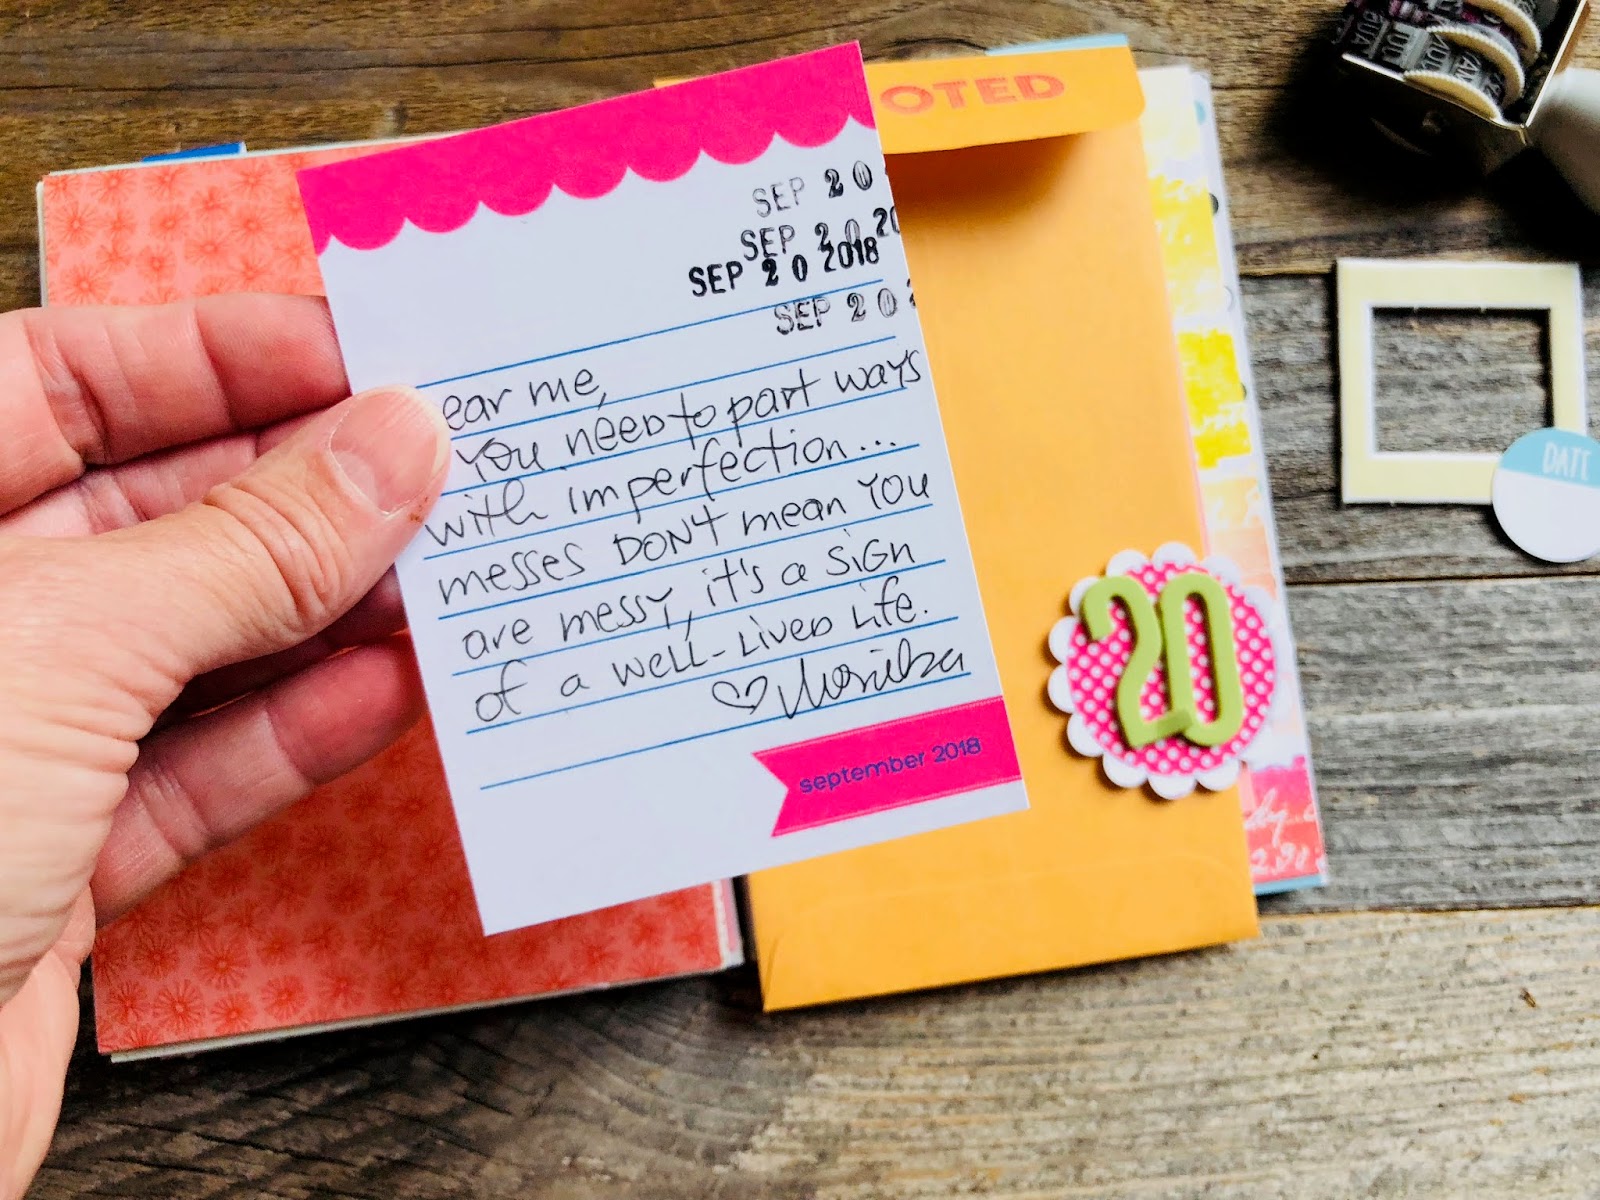 OTED
SEP 20
SEP 20 20
SEP 20 2018
SEP 20 2
ear me,
You need to part ways
with imperfection...
messes DON't mean You
are messy, it's a sign
of a well-lived life.
september 2018
20
DATE